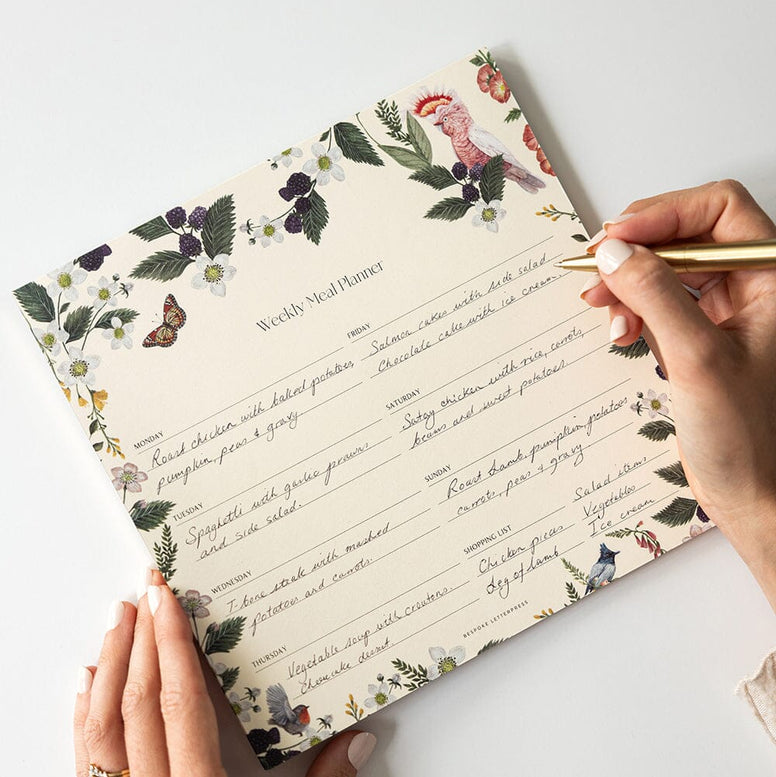 Weekly Meal Planner
MONDAY
Roast chicken with baked potatoes,
pumpkin, peas & gravy
TUESDAY
Spaghetti with garlic prawns
and side salad.
WEDNESDAY
T-bone steak with mashed
potatoes and carrots.
THURSDAY
Vegetable soup with croutons.
FRIDAY
Salmon cakes with side salad
Chocolate cake with ice cream.
SATURDAY
Satay chicken with rice, carrots,
beans and sweet potatoes
SUNDAY
Roast lamb, pumpkin, potatoes
carrots, peas & gravy
SHOPPING LIST
Chicken pieces
Leg of lamb
Salad items
Vegetables
Ice cream
BESPOKE LETTERPRESS